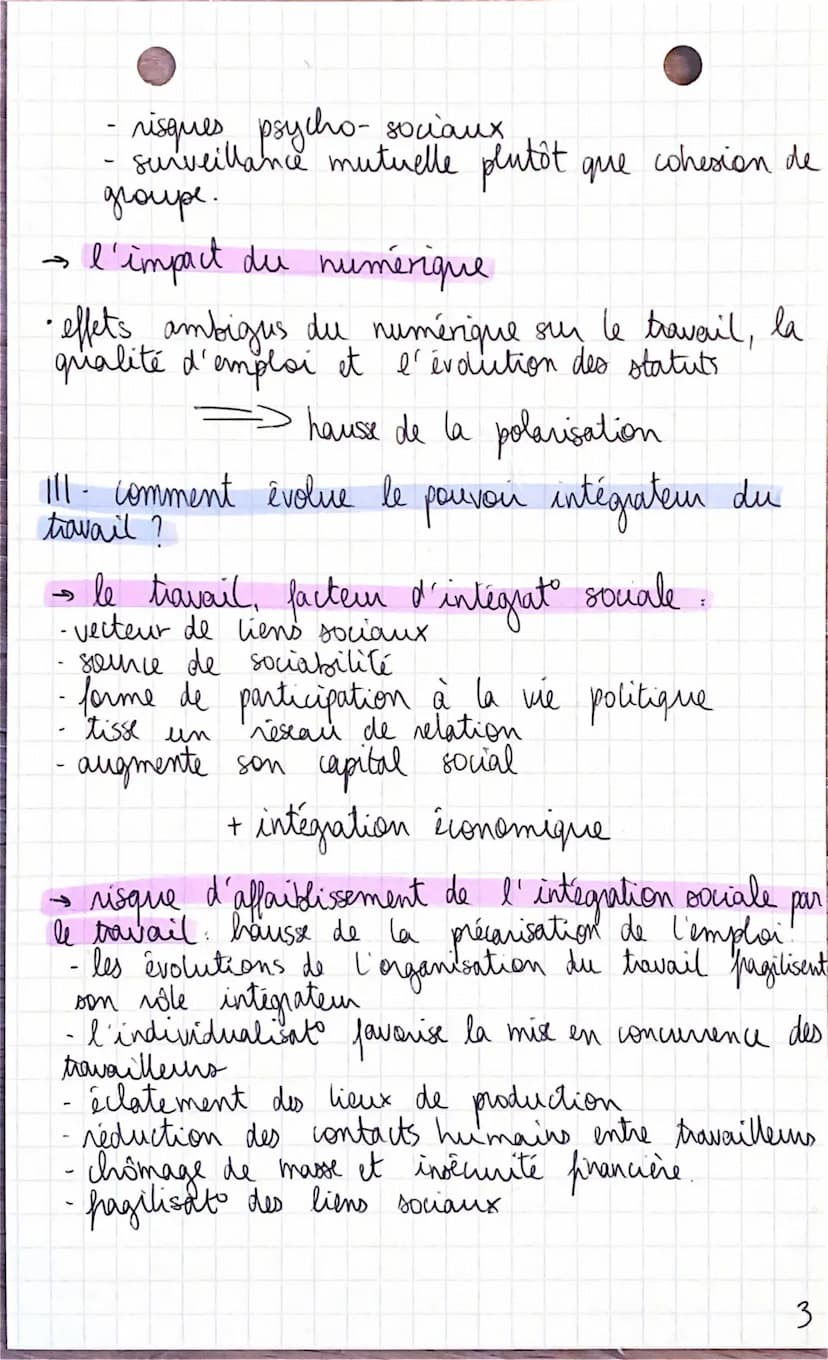 - risques psycho-sociaux
- surveillance mutuelle plutôt que cohesion de
groupe.
→ l'impact du numérique
· effets ambigus du numérique sur le travail, la
qualité d'emploi et l'évolution des statuts
⟹ hausse de la polarisation
III - comment évolue le pouvoir intégrateur du
travail ?
→ le travail, facteur d'intégrat° sociale :
- vecteur de liens sociaux
- source de sociabilité
- forme de participation à la vie politique
- tisse un réseau de relation
- augmente son capital social
+ intégration économique
→ risque d'affaiblissement de l'intégration sociale par
le travail : hausse de la précarisation de l'emploi.
- les évolutions de l'organisation du travail fragilisent
son rôle intégrateur
- l'individualisat° favorise la mise en concurrence des
travailleurs
- éclatement des lieux de production
- réduction des contacts humains entre travailleurs
- chômage de masse et insécurité financière.
- fragilisat° des liens sociaux
3